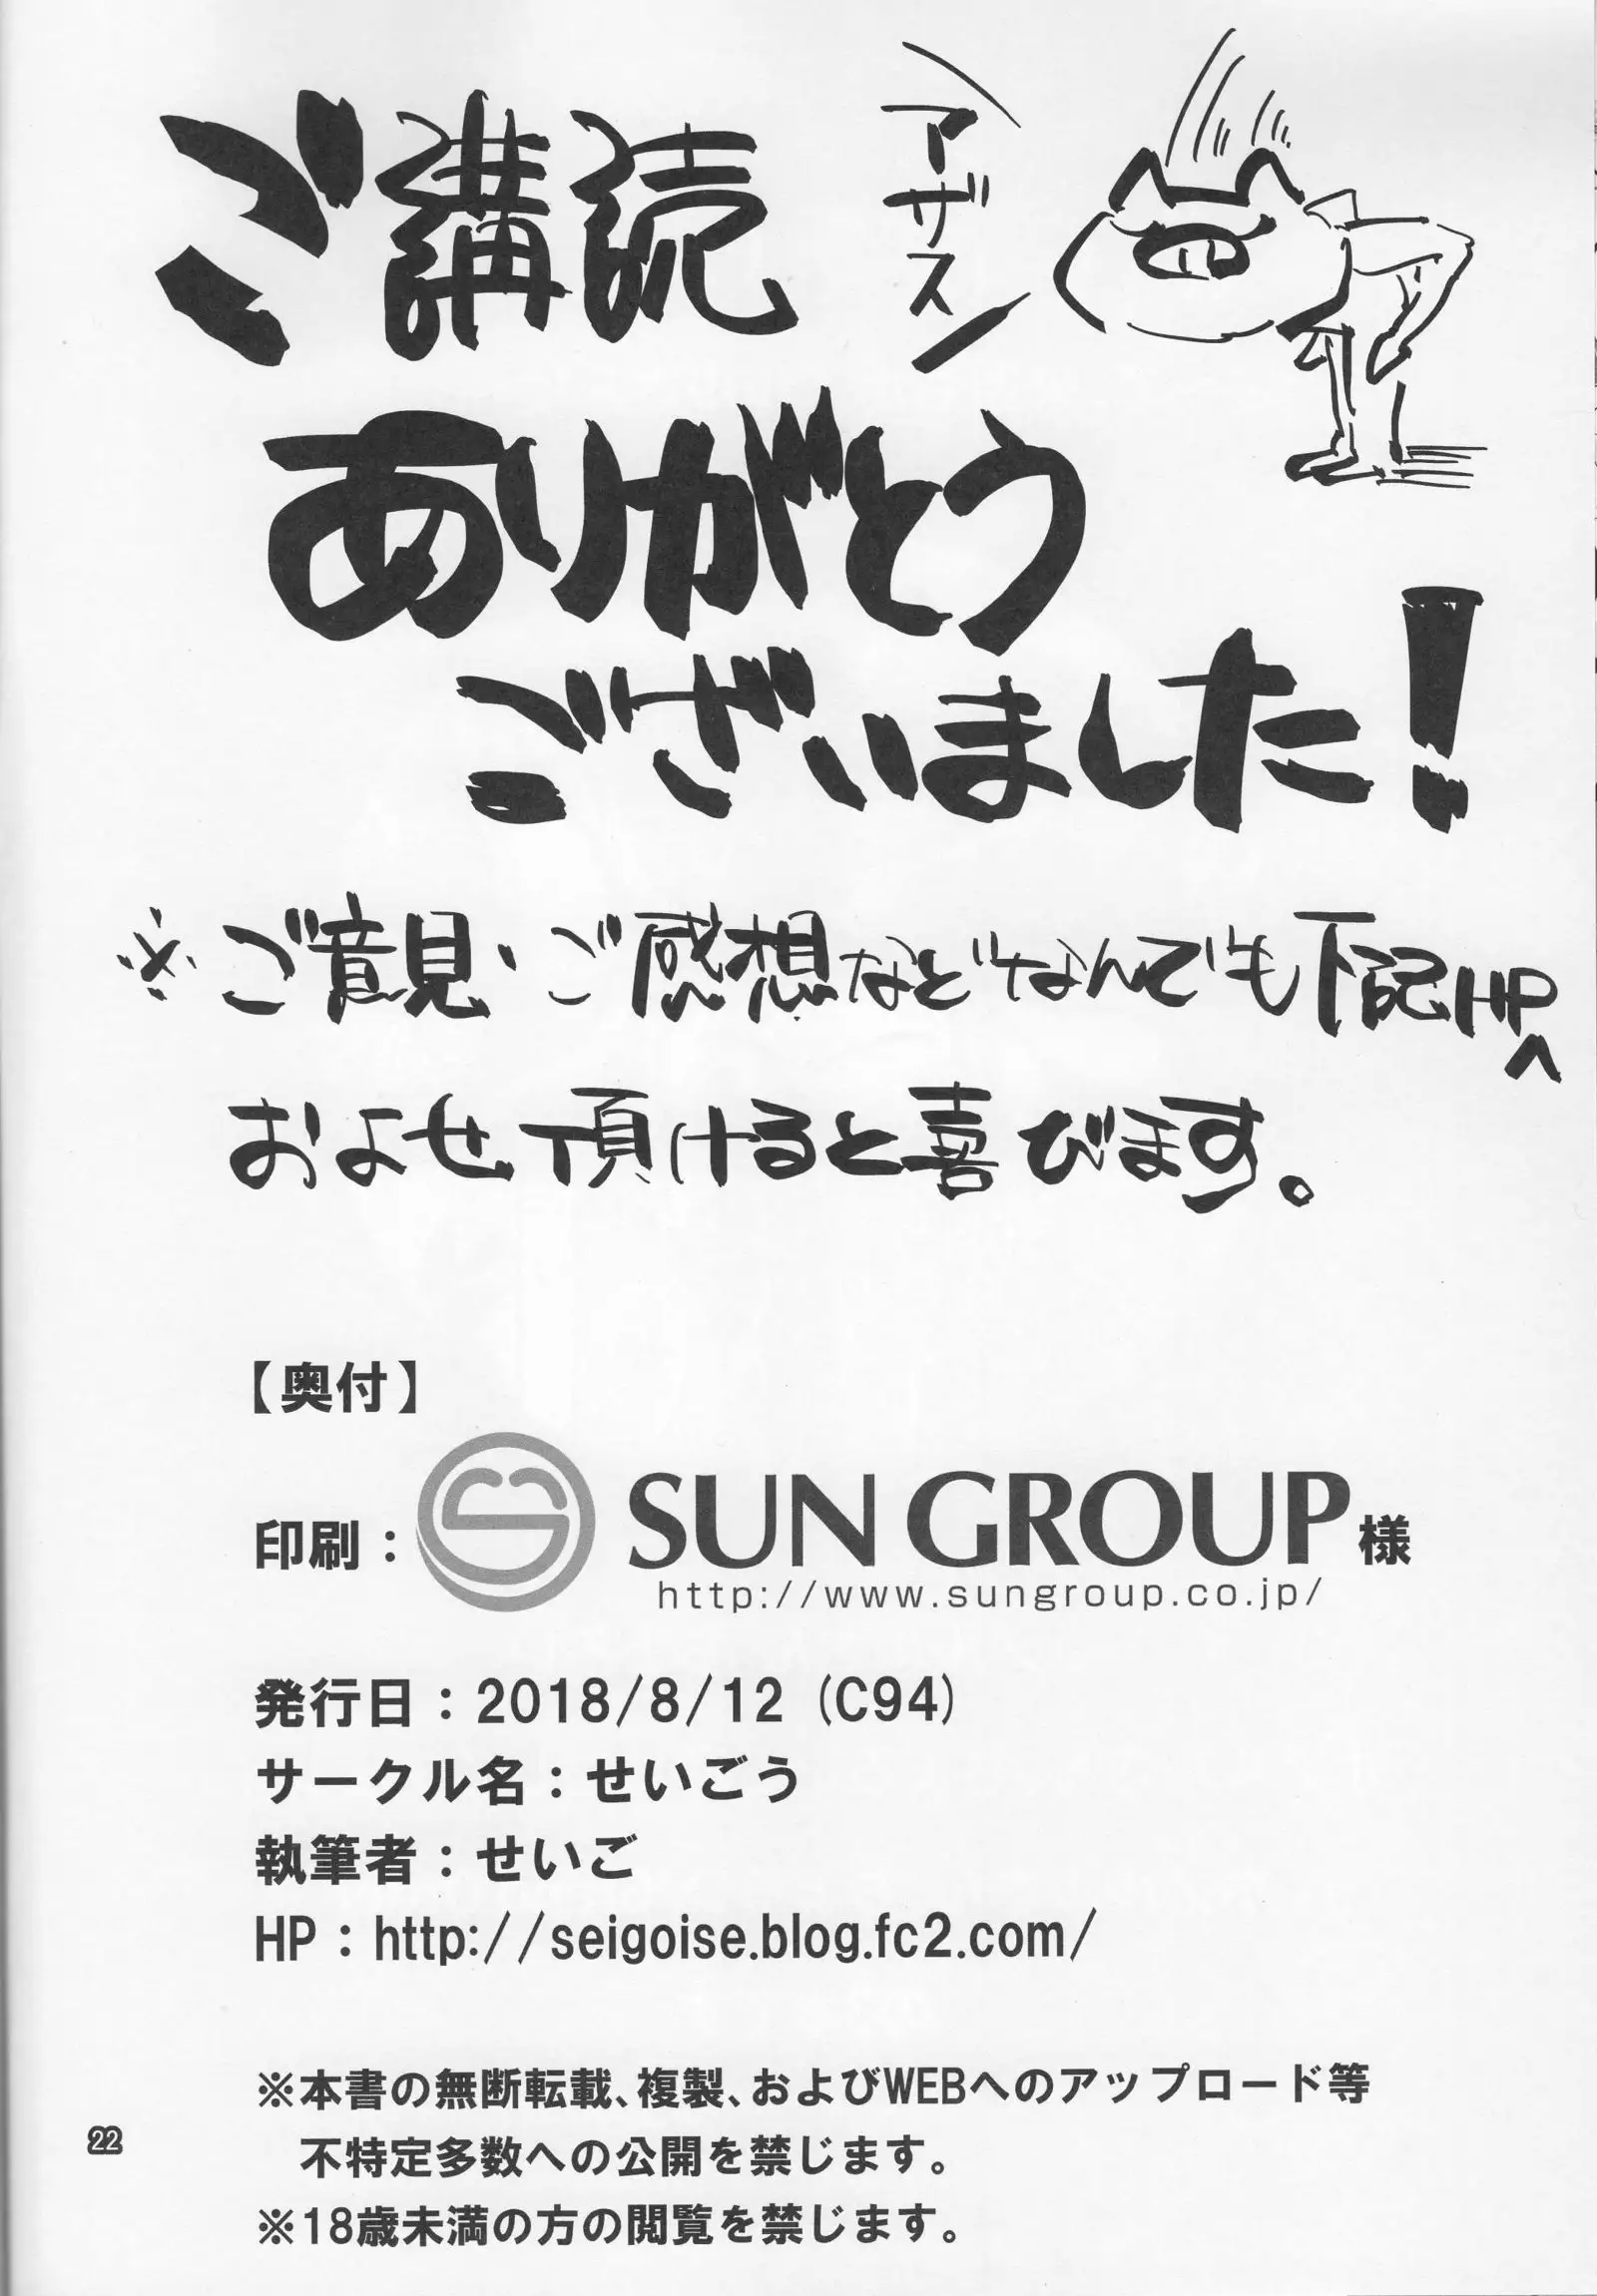 ご購読
アザス
ありがとう
ございました!
※ご意見・ご感想などなんでも下記HPへ
およせ頂けると喜びます。
【奥付】
印刷:SUN GROUP様
http://www.sungroup.co.jp/
発行日:2018/8/12 (C94)
サークル名:せいごう
執筆者:せいご
HP:http://seigoise.blog.fc2.com/
※本書の無断転載、複製、およびWEBへのアップロード等
不特定多数への公開を禁じます。
※18歳未満の方の閲覧を禁じます。
22